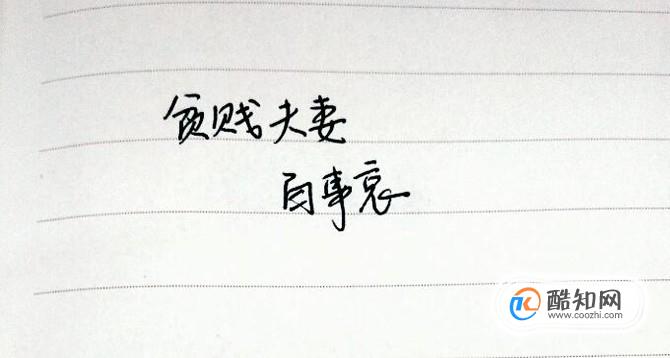 贫贱夫妻
百事哀
酷知网
www.coozhi.com